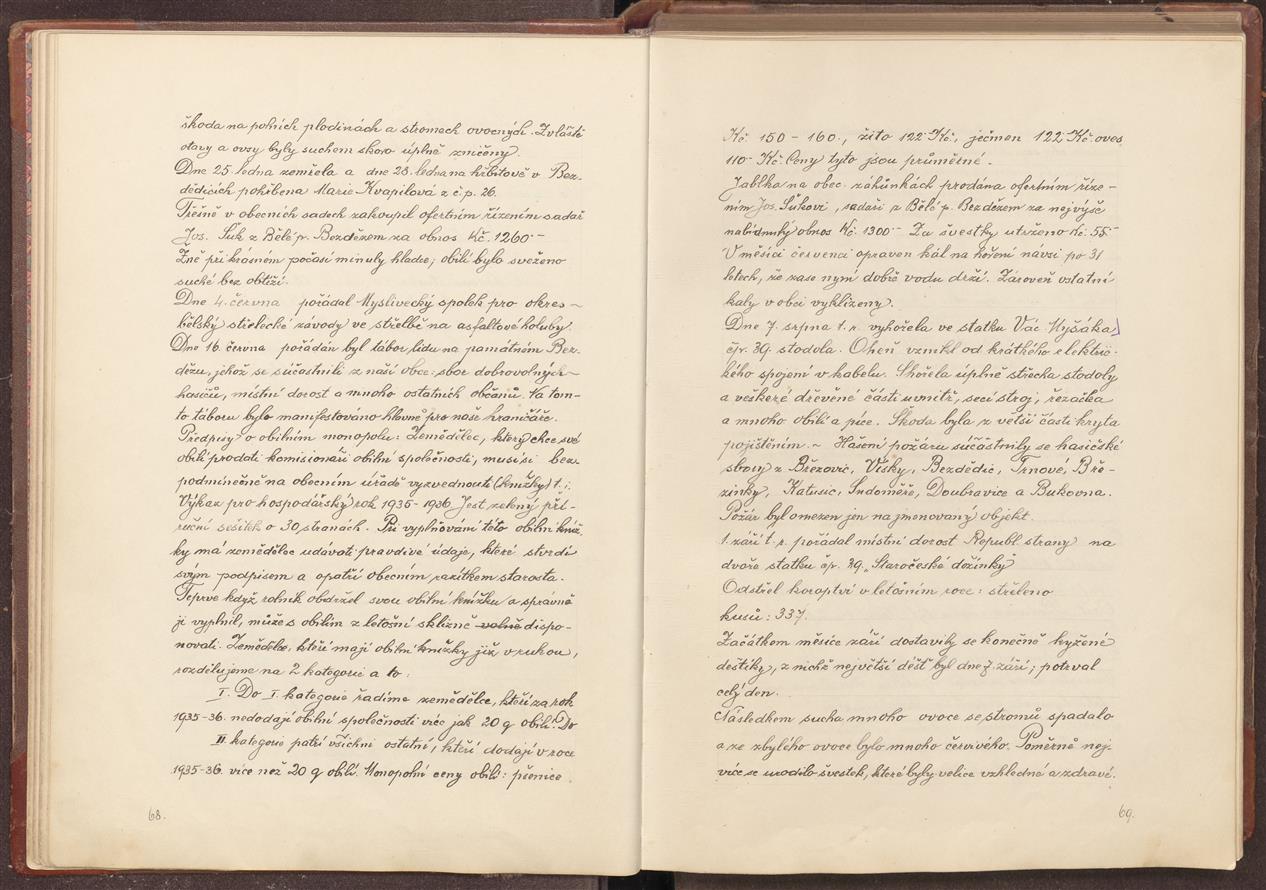 škoda na polních plodinách a stromech ovocných. Zvláště
otavy a ovsy byly suchem skoro úplně zničeny.
Dne 25. ledna zemřela a dne 28. ledna na hřbitově v Bez-
dědicích pohřbena Marie Kvapilová z č.p. 26.
Třešně v obecních sadech zakoupil ofertním řízením sadař
Jos. Šúk z Bělé p. Bezdězem za obnos Kč. 1260-
Žně při krásném počasí minuly hladce; obilí bylo sveženo
suché bez obtíží.
Dne 4. června pořádal Myslivecký spolek pro okres-
bělský střelecké závody ve střelbě na asfaltové holuby.
Dne 16. června pořádán byl tábor lidu na památném Bez-
dězu, jehož se súčastnili z naší obce: sbor dobrovolných-
hasičů, místní dorost a mnoho ostatních občanů. Na tom-
to táboru bylo manifestováno hlavně pro naše hraničáře.
Předpisy o obilním monopolu: Zemědělec, který chce své
obilí prodati komisionáři obilní společnosti, musí si bez-
podmínečně na obecním úřadě vyzvednouti (knížky) t. i.
Výkaz pro hospodářský rok 1935-1936. Jest zelený pří-
ruční sešitek o 30 stranách. Při vyplňování této obilní kníž-
ky má zemědělec udávati pravdivé údaje, které stvrdí
svým podpisem a opatří obecním razítkem starosta.
Teprve když rolník obdržel svou obilní knížku a správně
ji vyplnil, může s obilím z letošní sklizně volně dispo-
novati. Zemědělce, kteří mají obilní knížky již v rukou,
rozdělujeme na 2 kategorie a to:
I. Do I. kategorie řadíme zemědělce, kteří za rok
1935-36. nedodají obilní společnosti více jak 20 q obilí. Do
II. kategorie patří všichni ostatní, kteří dodají v roce
1935-36. více než 20 q obilí. Monopolní ceny obilí: pšenice
68.
Kč. 150 - 160., žito 122 Kč, ječmen 122 Kč. oves
110- Kč. Ceny tyto jsou průměrné.
Jablka na obec. záhůnkách prodána ofertním říze-
ním Jos. Šúkovi, sadaři z Bělé p. Bezdězem za nejvýše
nabídnutý obnos Kč. 1300- Za švestky utrženo Kč. 55-
V měsíci červenci opraven kál na hoření návsi po 31
letech, že zase nyní dobře vodu drží. Zároveň ostatní
kaly v obci vyklízeny.
Dne 7. srpna t. r. vyhořela ve statku Vác. Vyšáka
čp. 39. stodola. Oheň vznikl od krátkého elektric-
kého spojení v kabelu. Shořela úplně střecha stodoly
a veškeré dřevěné části uvnitř, secí stroj, řezačka
a mnoho obilí a píce. Škoda byla z větší části kryta
pojištěním. - Hašení požáru súčastnily se hasičské
sbory z Březovic, Vísky, Bezdědic, Trnové, Bře-
zinky, Katusic, Sudoměře, Doubravice a Bukovna.
Požár byl omezen jen na jmenovaný objekt.
1. září t. r. pořádal místní dorost Republ. strany na
dvoře statku čp. 29 „Staročeské dožínky"
Odstřel koroptví v letošním roce: střeleno
kusů: 337.
Začátkem měsíce září dostavily se konečně kýžené
deštíky, z nichž největší déšť byl dne 7. září; potrval
celý den.
Následkem sucha mnoho ovoce se stromů spadalo
a ze zbylého ovoce bylo mnoho červivého. Poměrně nej-
více se urodilo švestek, které byly velice vzhledné a zdravé.
69.